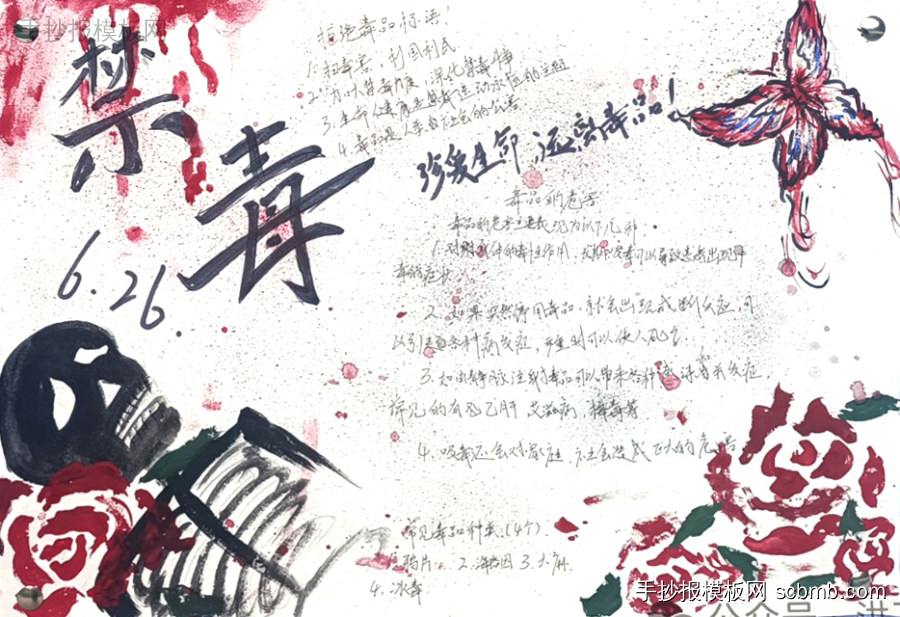 手抄报模板网
禁
毒
6.26
拒绝毒品标语!
1. 扫毒害,利国利民
2. 加大禁毒力度,深化禁毒
3. 生命健康是禁毒运动永恒的主题
4. 毒品是人类社会的公害
珍爱生命,远离毒品!
毒品的危害
毒品的危害主要表现为以下几种
1. 对身体的毒性作用,
毒的症状
2. 如果突然停用毒品,就会出现戒断反应,可
以引起各种病发症,严重时可以使人死亡.
3. 如由静脉注射毒品可以带来各种感染病并发症.
常见的有 乙肝 艾滋病,梅毒等
4. 吸毒还会对家庭,社会造成巨大的危害
常见毒品种类(4个)
1. 鸦片 2. 海洛因 3. 大麻
4. 冰毒
手抄报模板网 scbmb.com
公众号